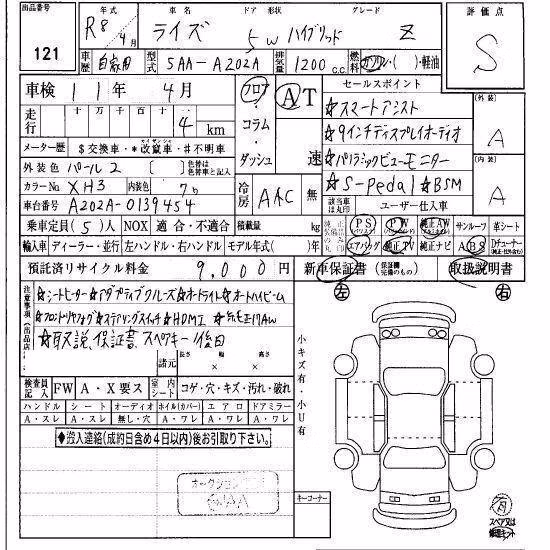 出品番号 121
年式 R8/4月 車名 ライズ ドア 形状 5W ハイブリッド グレード Z
評価点 S
車歴 自家用 型式 5AA-A202A 排気量 1200 c.c. 燃料 ガソリン・( )・軽油
車検 11年 4月 フロア・コラム・ダッシュ AT 速
セールスポイント
走行 十万千百十 4 km
★スマートアシスト
外装 A
メーター歴 $交換車・*改竄車・#不明車
★9インチディスプレイオーディオ
外装色 パール2 [ ] 色替は色替車と記入
★パノラミックビューモニター
内装 A
カラーNo XH3 内装色 冷房 AAC 無
★S-Pedal ★BSM
車台番号 A202A-0139454
該当車は丸印 ユーザー仕入車
乗車定員(5)人 NOX 適合・不適合 積載量 kg
純正品のみ丸印 PS PW 純正AW サンルーフ 革シート
輸入車 ディーラー・並行 左ハンドル・右ハンドル モデル年式( )年
エアバッグ 純正TV 純正ナビ ABS
預託済リサイクル料金 9,000円 新車保証書 取扱説明書
注意事項(出品店)
★シートヒーター★アダプティブクルーズ★オートライト★オートハイビーム
★ステアリングスイッチ★HDMI★純正17AW
★取説、保証書、スペアキー後日
諸元 長さ × 幅 × 高さ
左 右
小キズ有・小U有
検査員記入 FW A・X要ス 室内シート コゲ・穴・キズ・汚れ・破れ
ハンドル シート オーディオ ホイル(カバー) エアロ ドアミラー
A・スレ A・スレ 無し・穴 A・ワレ A・ワレ A・ワレ
◆搬入連絡(成約日含め4日以内)後お引取り下さい。
オークション
キーコーナー
スペア又は修理キット